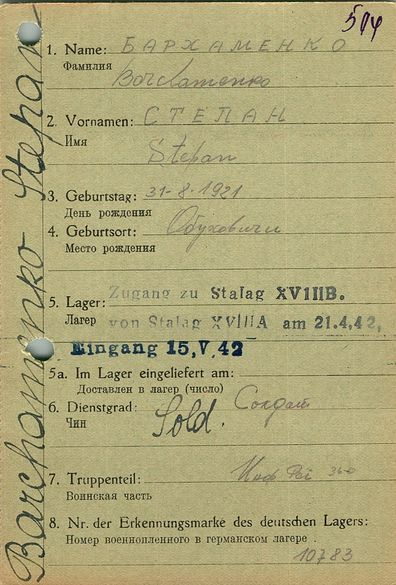 504
1. Name: БАРХАМЕНКО
Фамилия
Barchamenko
2. Vornamen: СТЕПАН
Имя
Stepan
3. Geburtstag: 31-8-1921
День рождения
4. Geburtsort: Обуховичи
Место рождения
Zugang zu Stalag XVIIIB.
5. Lager:
Лагер von Stalag XVIIIA am 21.4.42.
Eingang 15.V.42
5a. Im Lager eingeliefert am:
Доставлен в лагер (число)
6. Dienstgrad: Sold. Солдат
Чин
7. Truppenteil: 360
Воинская часть
8. Nr. der Erkennungsmarke des deutschen Lagers:
Номер военнопленного в германском лагере .
10783
Barchamenko Stepan